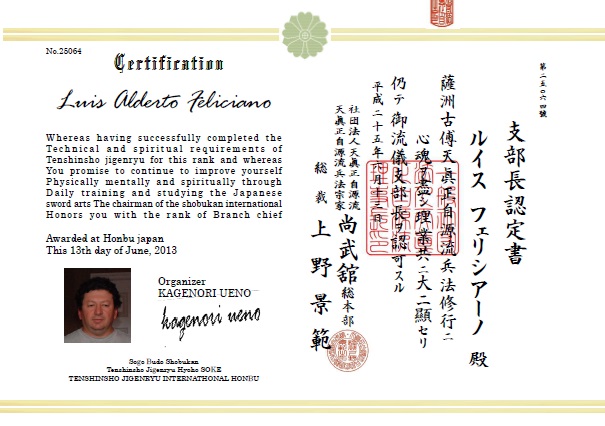 No.25064
Certification
Luis Alderto Feliciano
Whereas having successfully completed the
Technical and spiritual requirements of
Tenshinsho jigenryu for this rank and whereas
You promise to continue to improve yourself
Physically mentally and spiritually through
Daily training and studying the Japanese
sword arts The chairman of the shobukan international
Honors you with the rank of Branch chief
Awarded at Honbu japan
This 13th day of June, 2013
Organizer
KAGENORI UENO
kagenori ueno
Sogo Budo Shobukan
Tenshinsho Jigenryu Hyoho SOKE
TENSHINSHO JIGENRYU INTERNATIONAL HONBU
第二五〇六四號
支部長認定書
ルイス フェリシアーノ 殿
薩洲古傳天眞正自源流兵法修行ニ
心魂ヲ盡シ理業共ニ大ニ顯セリ
仍テ御流儀支部長ヲ認可スル
平成二十五年六月十三日
社団法人天眞正自源流
天眞正自源流兵法宗家
尚武舘総本部
総裁 上野景範